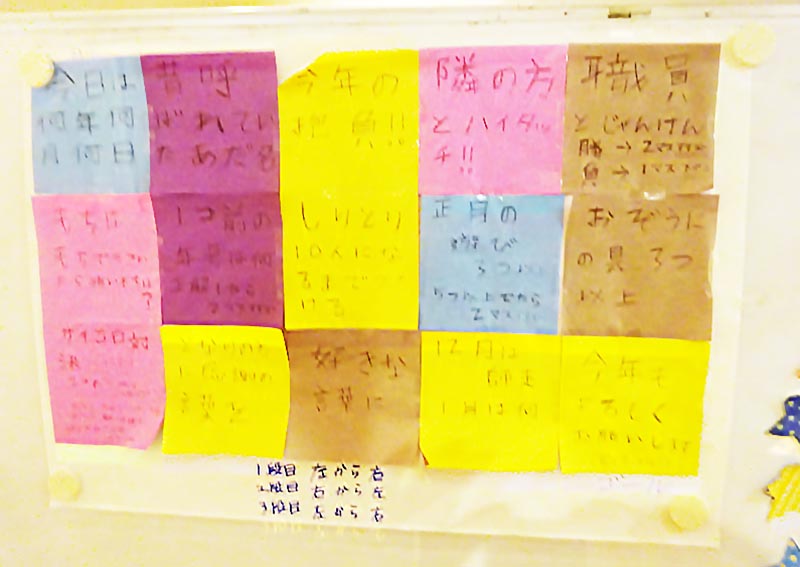 今日は
何年何
月何日
昔呼
ばれてい
たあだ名
今年の
抱負!!
隣の方
とハイタッ
チ!!
職員
とじゃんけん
勝→2マス
負→1マス
もちは
1つ前の
年号は何
しりとり
10人にな
るまでつづ
ける
正月の
遊び
3つ
5つ以上でたら
2マス
おぞうに
の具3つ
以上
サイコロ対
決
となりの方
に感謝の
言葉を
好きな
言葉は
12月は
師走
1月は何
今年も
よろしく
お願いします
ゴール
1段目 左から右
2段目 右から左
3段目 左から右